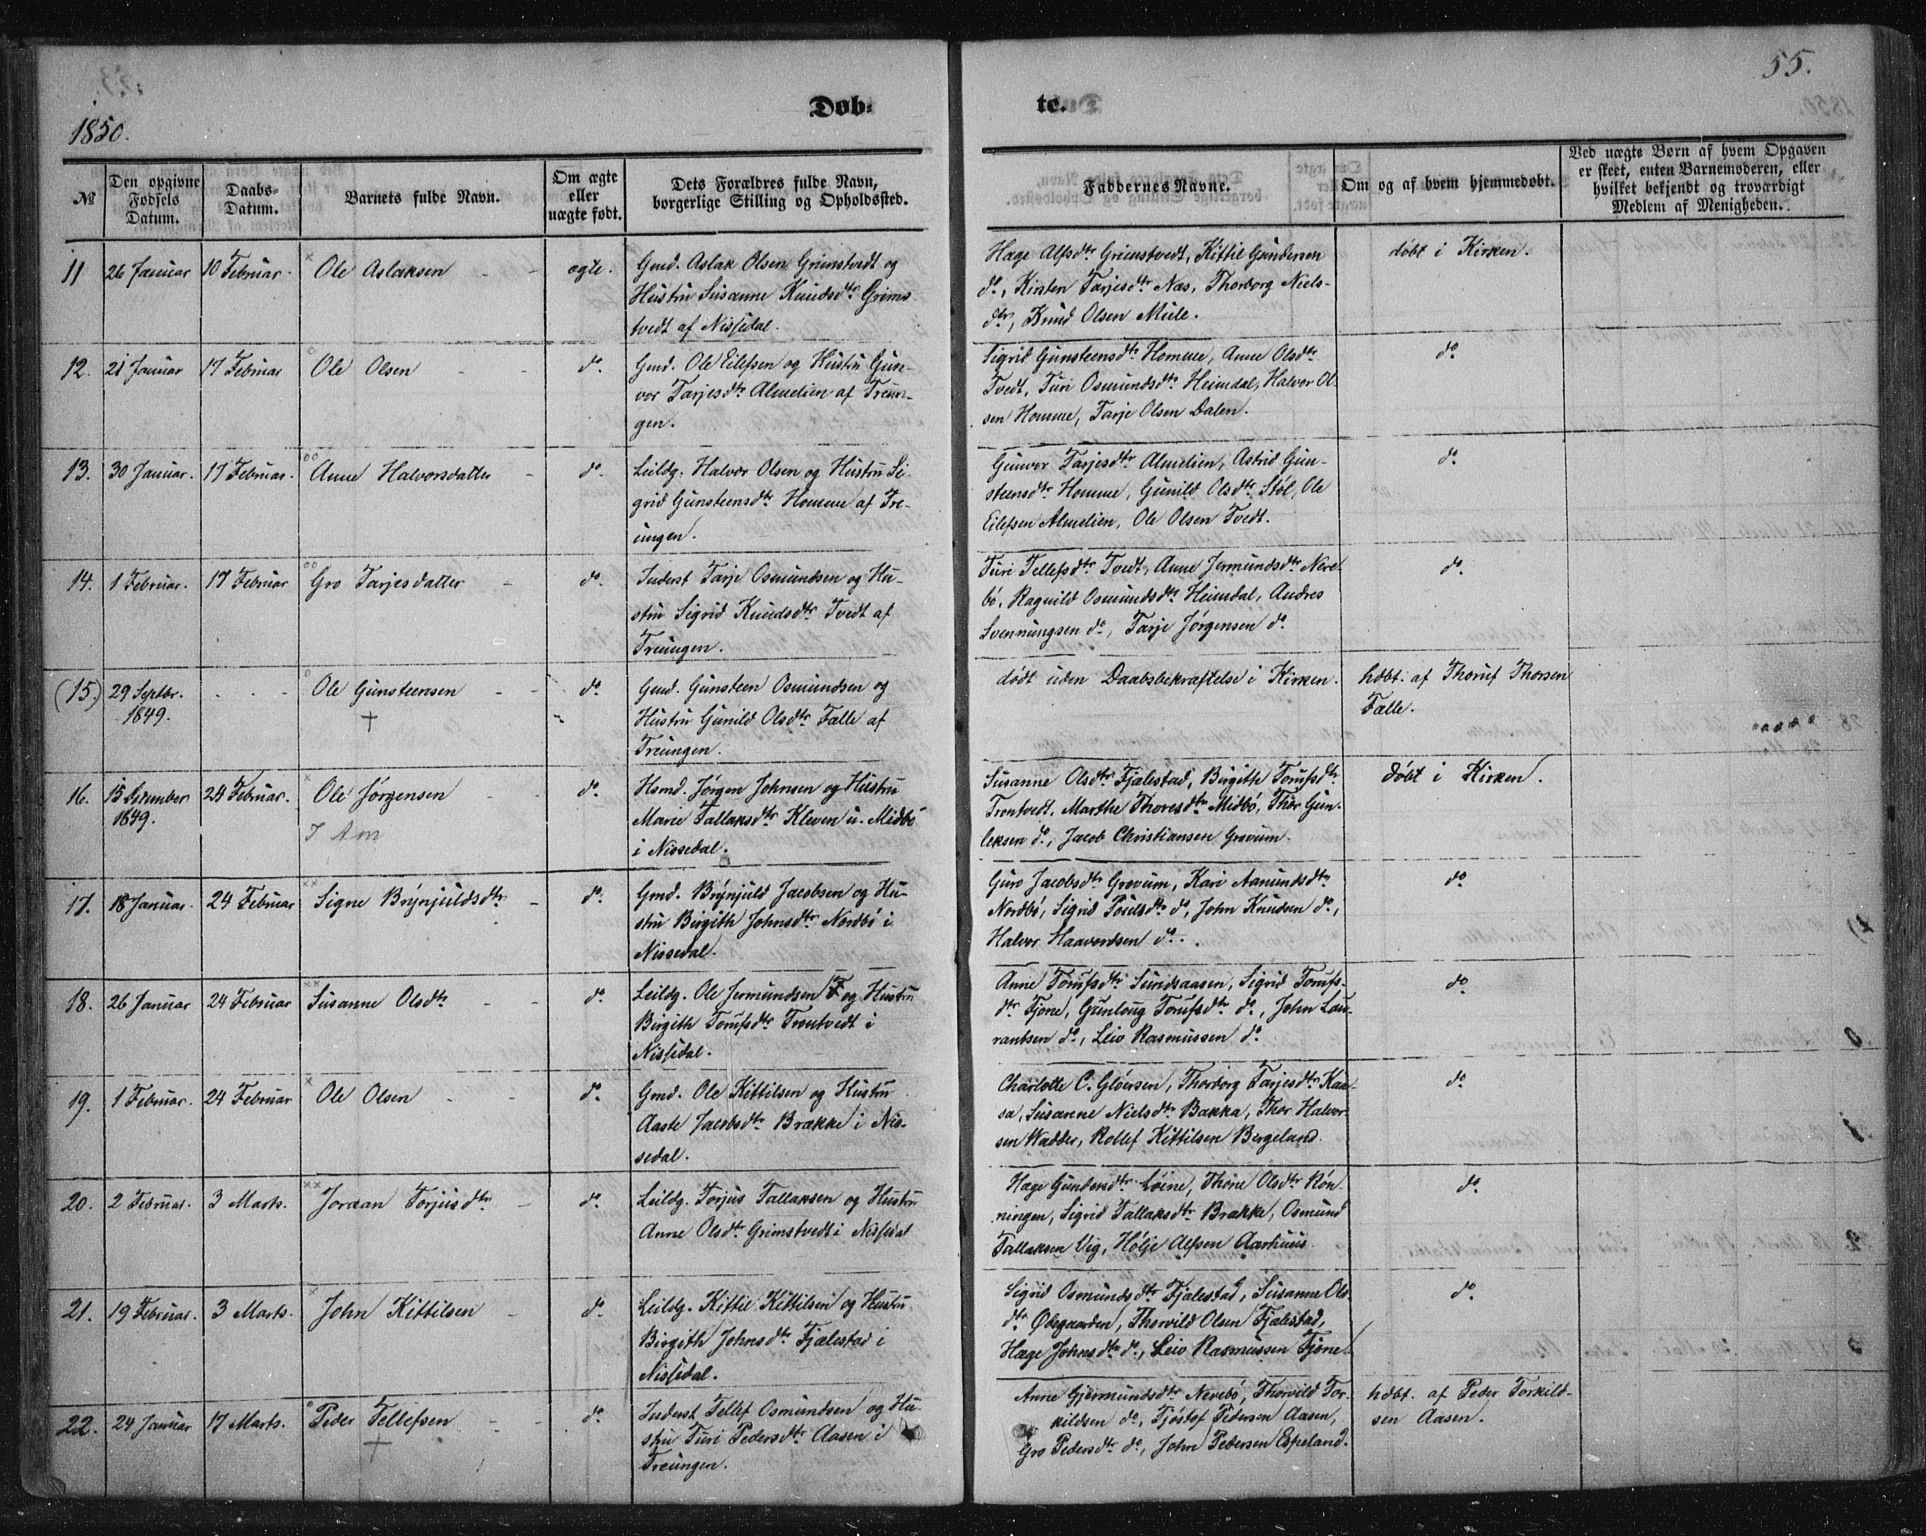 55.
1850.
Døb-
te.
№
Den opgivne Fødsels Datum.
Daabs-Datum.
Barnets fulde Navn.
Om ægte eller uægte født.
Dets Forældres fulde Navn, borgerlige Stilling og Opholdssted.
Faddernes Navne.
Om og af hvem hjemmedøbt.
Ved uægte Børn af hvem Opgaven er skeet, enten Barnemoderen, eller hvilket bekjendt og troværdigt Medlem af Menigheden.
11 26 Januar 10 Februar. Ole Aslaksen ægte.
Gmd. Aslak Olsen Grimstvedt og
Hustru Susanne Knudsdtr Grims
tvedt af Nissedal.
Hæge Alfsdtr Grimstvedt, Kittil Gundersen
do, Kirsten Tarjesdtr Næs, Thorborg Niels-
dtr, Knud Olsen Mule.
døbt i Kirken.
12. 21 Januar 17 Februar Ole Olsen do.
Gmd. Ole Eilefsen og Hustru Gun-
vor Tarjesdtr Almelien af Treun-
gen.
Sigrid Gunsteensdtr Homme, Anne Olsdtr
Tvedt, Turi Osmundsdtr Heimdal, Halvor Ol-
sen Homme, Tarje Olsen Dalen.
do
13. 30 Januar. 17 Februar. Anne Halvorsdatter do.
Leildg. Halvor Olsen og Hustru Si-
grid Gunsteensdtr Homme af Tre-
ungen.
Gunvor Tarjesdtr Almelien, Astrid Gun-
steensdtr Homme, Gunild Olsdtr Støl, Ole
Eilefsen Almelien, Ole Olsen Tvedt.
do.
14. 1 Februar. 17 Februar Gro Tarjesdatter do.
Inderst Tarje Osmundsen og Hu-
stru Sigrid Knudsdtr Tvedt af
Treungen.
Turi Tellefsdtr Tvedt, Anne Jermundsdtr Nere-
bö, Ragnild Osmundsdtr Heimdal, Andres
Svennungsen do, Tarje Jørgensen do.
do.
(15.) 29 Septbr. 1849. Ole Gunsteensen † do.
Gmd. Gunsteen Osmundsen og
Hustru Gunild Olsdtr Falle af
Treungen.
dødt uden Daabsbekræftelse i Kirken.
hdbt. af Thoruf Thorsen
Falle.
16. 1849. 24 Februar. Ole Jørgensen do.
Hsmd. Jørgen Johnsen og Hustru
Marie Tallaksdtr Kleven u. Midbö
i Nissedal.
Susanne Olsdtr Fjalestad, Birgithe Torufsdtr
Trontvedt, Marthe Thoresdtr Midbö, Thor Gun-
leksen do, Jacob Christiansen Gravum.
døbt i Kirken.
17. 18 Januar. 24 Februar Signe Brynjuldsdtr do.
Gmd. Brynjuld Jacobsen og Hu-
stru Birgith Johnsdtr Nordbö i
Nissedal.
Guro Jacobsdtr Gravum, Kari Aamundsdtr
Nordbö, Sigrid Poulsdtr do, John Knudsen do,
Halvor Haavordsen do.
do
18. 26 Januar 24 Februar Susanne Olsdtr do.
Leildg. Ole Jermundsen og Hustru
Birgith Torufsdtr Trontvedt i
Nissedal.
Anne Torufsdtr Sundsaasen, Sigrid Torufs-
dtr Fjone, Gunloug Torufsdtr do, John Lau-
rantsen do, Leiv Rasmussen do.
do
19. 1 Februar. 24 Februar Ole Olsen do.
Gmd. Ole Kittilsen og Hustru
Aaste Jacobsdtr Brække i Nis-
sedal.
Charlotte C. Gløersen, Thorborg Tarjesdtr Kaa-
sa, Susanne Nielsdtr Bakka, Thor Halvor-
sen Wadder, Rollef Kittilsen Bergeland.
do
20. 2 Februar. 3 Marts. Joraan Torjusdtr do.
Leildg. Torjus Tallaksen og Hustru
Anne Olsdtr Grimstvedt i Nissedal
Hæge Gundersdtr Löine, Thone Olsdtr Røn-
ningen, Sigrid Tallaksdtr Brække, Osmund
Tallaksen Vig, Hølje Alfsen Aarhuus.
do.
21. 19 Februar. 3 Marts. John Kittilsen do.
Leildg. Kittil Kittilsen og Hustru
Birgith Johnsdtr Fjalestad i
Nissedal.
Sigrid Osmundsdtr Fjalestad, Susanne Ols-
dtr Ødegaarden, Thorvild Olsen Fjalestad,
Hæge Johnsdtr do, Leiv Rasmussen Fjone.
do.
22. 24 Januar 17 Marts. Peder Tellefsen † do.
Inderst Tellef Osmundsen og Hu-
stru Turi Pedersdtr Aasen i
Treungen.
Anne Gjermundsdtr Nerebö, Thorvild Tor-
kildsen do, Tjøstof Pedersen Aasen,
Gro Pedersdtr do, John Pedersen Espeland.
hdbt. af Peder Torkild-
sen Aasen.